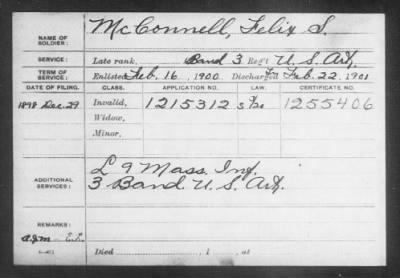 NAME OF SOLDIER: McConnell, Felix S.
SERVICE: Late rank, Band 3 Reg't U. S. Art.
TERM OF SERVICE: Enlisted Feb. 16, 1900 Discharged Feb. 22, 1901
DATE OF FILING. CLASS. APPLICATION NO. LAW. CERTIFICATE NO.
1898 Dec. 29 Invalid, 1215312 1255406
Widow,
Minor,
ADDITIONAL SERVICES: L 9 Mass. Inf.
3 Band. U. S. Art.
REMARKS:
Died , 1 , at